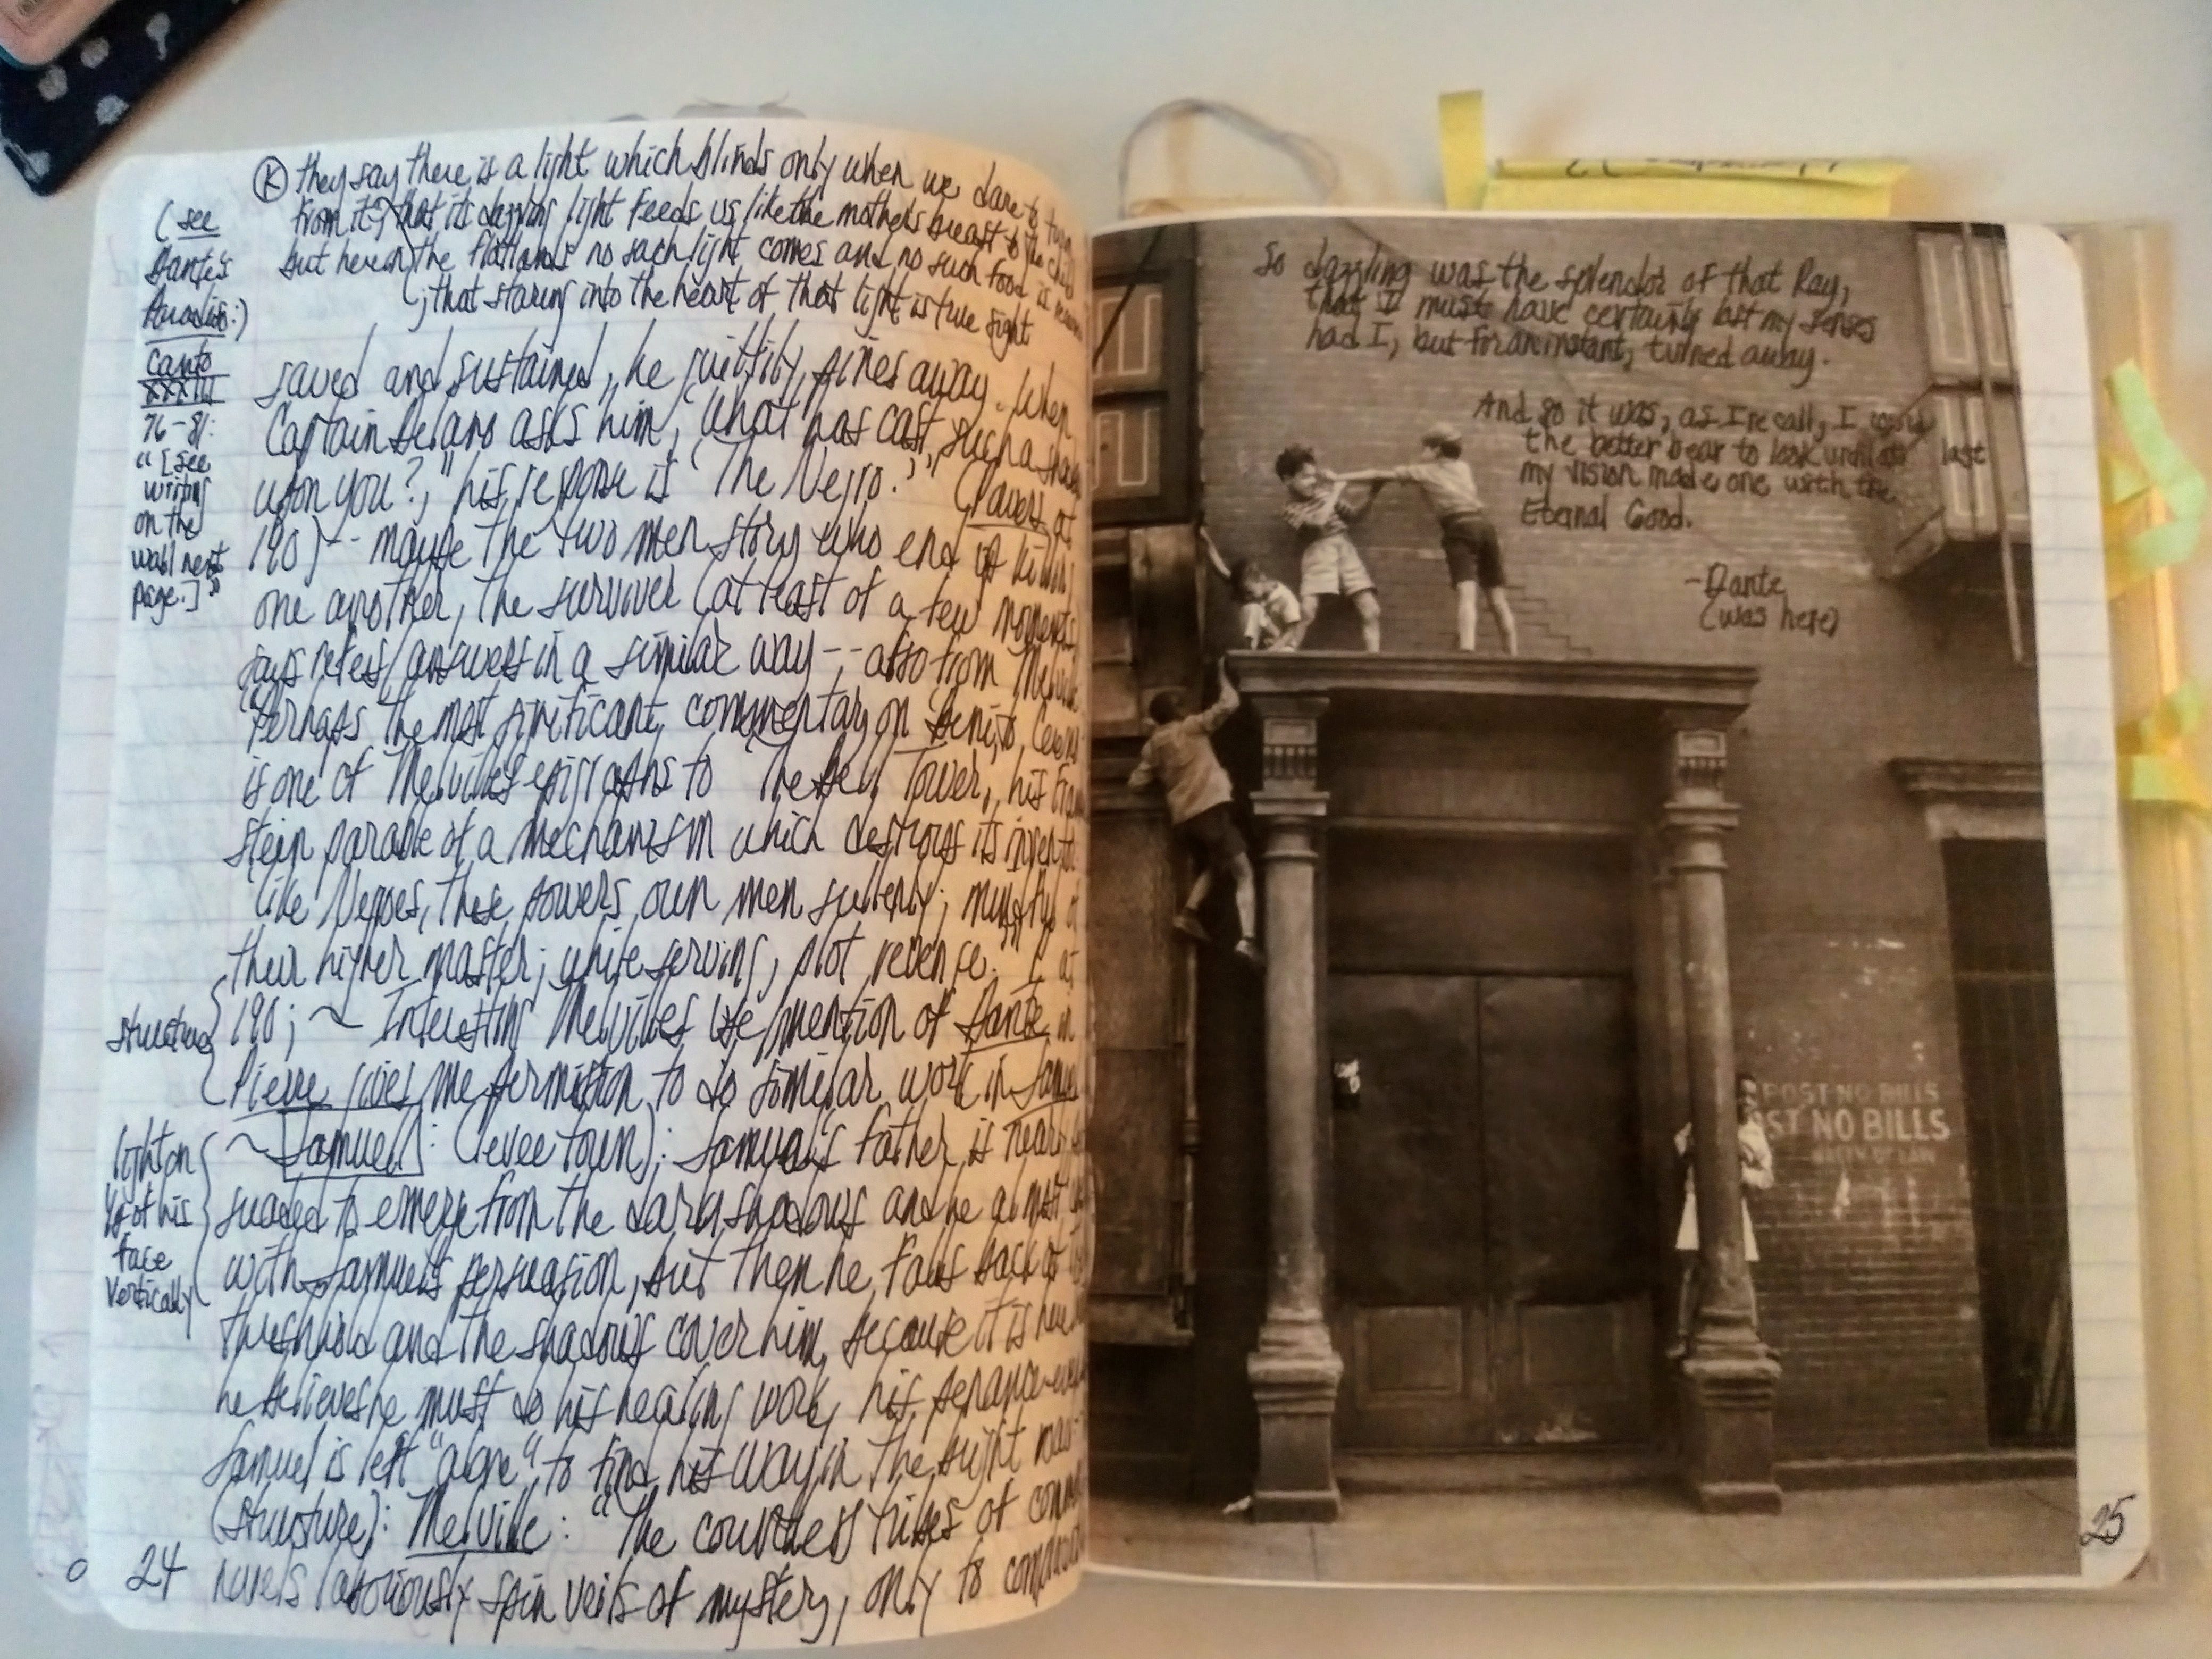 (K) they say there is a light which blinds only when we dare to turn
from it; that its dazzling light feeds us like the mother's breast to the child
but here in the flatlands no such light comes and no such food is
; that staring into the heart of that light is true sight
(see
Dante's
Paradiso:)
canto
XXXIII
76-81:
"[see
writing
on the
wall next
page.]"
saved and sustained, he guiltily pines away. When
Captain Delano asks him, 'What has cast such a shadow
upon you?,' his response is 'The Negro.'" (Powers of
190)-- maybe the two men story who end up killing
one another, the surviver (at least of a few moments)
says answers in a similar way-- also from Melville
"Perhaps the most significant commentary on Benito Cereno
is one of Melville's epigraphs to 'The Bell Tower,' his
stein parable of a mechanism which destroys its inventor
'like Negroes, these powers own men sullenly; mindful of
their higher master; while serving, plot revenge.'
190; ~ Interesting Melville's use/mention of Dante in
Pierre gives me permission to do similar work in Samuel
structure
~ Samuel: (levee town): Samuel's father is
suaded to emerge from the dark shadows and he almost
with Samuel's persuasion, but then he falls back
threshold and the shadows cover him, because it is
he believes he must do his healing work, his penance
Samuel is left "alone" to find his way in the bright
light on
1/2 of his
face
vertically
(structure): Melville: "The countless tribes of common
novels laboriously spin veils of mystery, only to
24
So dazzling was the splendor of that Ray,
that I must have certainly lost my senses
had I, but for an instant, turned away.
And so it was, as I recall, I could
the better bear to look until at last
my vision made one with the
Eternal Good.
-Dante
(was here)
POST NO BILLS
ST NO BILLS
25